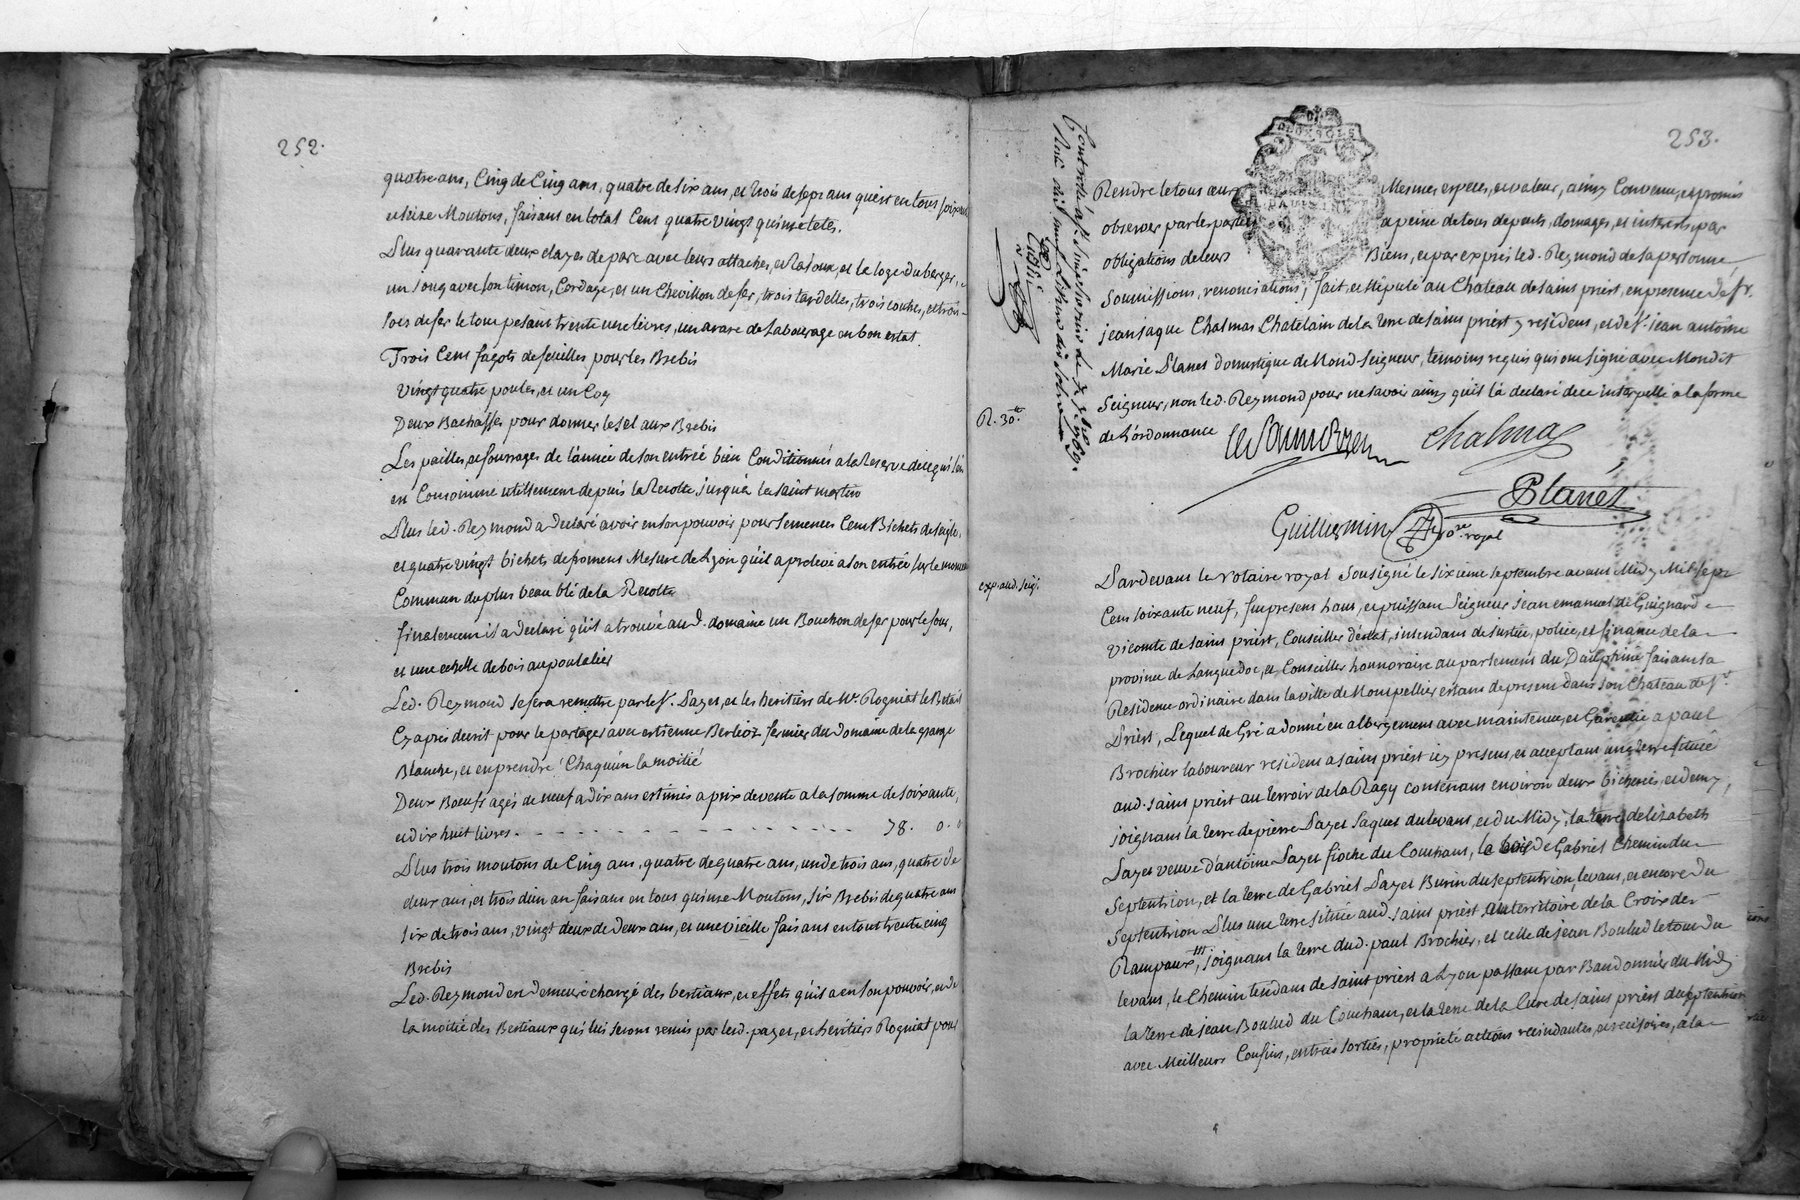 252.
quatre ans, Cinq de Cinq ans, quatre de six ans, et trois de sept ans qui est en tous soixante
et seize Moutons, faisans en total Cent quatre vingt quinze tetes.
Plus quarante deux clayes de parc avec leurs attaches, et la loge du berger,
un joug avec son timon, Cordage, et un Chevillon de fer, trois tardelles, trois coutres, et trois
socs de fer le tout pesant trente une livres, un araire de Labourage en bon estat.
Trois Cent fagots de feuilles pour les Brebis
vingt quatre poules, et un Coq
Deux Bachasses pour donner le sel aux Brebis
Les pailles, et fourrages de l'année de son entrée bien Conditionnés a la Reserve de ce qu'il
en Consomme utillement depuis la Recolte jusqu'a la saint martin
Plus led. Reymond a declaré avoir en son pouvoir pour semences Cent Bichets de seigle,
et quatre vingt bichets de froment Mesure de Lyon qu'il a prelevé a son entrée sur le monceau
Commun du plus beau blé de la Recolte
finalement il a declaré qu'il a trouvé aud. domaine un Bouchon de fer pour le four,
et une echelle de bois au poulalier
Led. Reymond se fera remettre par le Sr. Payet, et les heritiers de Mr. Rogniat le Betail
Cy apres decrit pour le partager avec estienne Berlioz fermier du Domaine de la grange
Blanche, et en prendre Chaqu'un la moitié
Deux Boeufs agés de neuf a dix ans estimés a prix de vente a la somme de soixante,
et dix huit livres - - - - - - - - - - - - - - 78. 0. 0
Plus trois moutons de Cinq ans, quatre de quatre ans, un de trois ans, quatre de
deux ans, et trois d'un an faisans en tous quinze Moutons, six Brebis de quatre ans
six de trois ans, vingt deux de deux ans, et une vieille faisans en tout trente cinq
Brebis
Led. Reymond en demeure chargé des bestiaux, et effets qu'il a en son pouvoir, et de
la moitié des Bestiaux qui lui seront remis par led. payet, et heritiers Rogniat pour
253.
Rendre le tous aux Mesmes especes, et valeur, ainsy Convenu, et promis
observer par les parties a peine de tous depents, domages, et interets par
obligations de leurs Biens, et par exprés led. Reymond de sa personne
soumissions, renonciations, fait, et stipulé au Chateau de saint priest, en presence de Sr.
jean jaque Chalmas Chatelain de la terre de saint priest y residens, et de Sr. jean antoine
Marie Planet domestique de Mond Seigneur, temoins requis qui ont signé avec Mondit
Seigneur, non led. Reymond pour ne savoir ainsy qu'il la declaré de ce interpellé a la forme
de L'ordonnance
R. 30.tt
Chalmas
Planet
Guilliermin no.re royal
exp. aud. seig.
Pardevant le notaire royal soussigné le sixieme septembre avant Midy Mil sept
Cent soixante neuf, fut present haut, et puissant Seigneur jean emanuel de Guignard
vicomte de saint priest, Conseiller d'état, intendant de justice, police, et finance de la
province de Languedoc, et Conseiller honnoraire au parlement du Dauphiné faisant sa
Residence ordinaire dans la ville de Montpellier estant de present dans son Chateau de St.
Priest, Lequel de Gré a donné en albergement avec maintenue, et Garentie a paul
Brochier laboureur residens a saint priest icy present, et acceptant une terre située
aud. saint priest au terroir de la Ragy contenans environ deux bicherées et demy,
joignans la terre de pierre Payet Jaquet du levant, et du Midy, la terre d'elizabeth
Payet veuve d'antoine Payet fioche du Couchant, le bois de Gabriel Chemin du
septentrion, et la terre de Gabriel Payet Burin du septentrion, levant, et encore du
septentrion Plus une terre située aud. saint priest au territoire de la Croix des
Rampaux, joignans la terre dud. paul Brochier, et celle de jean Boulud le tout du
levant, le Chemin tendant de saint priest a Lyon passant par Bandonnier du Midy
la terre de jean Boulud du Couchant, et la terre de la Cure de saint priest du septentrion
avec Meilleurs Confins, entrées sorties, proprieté actions rescindantes, et rescisoires, a la